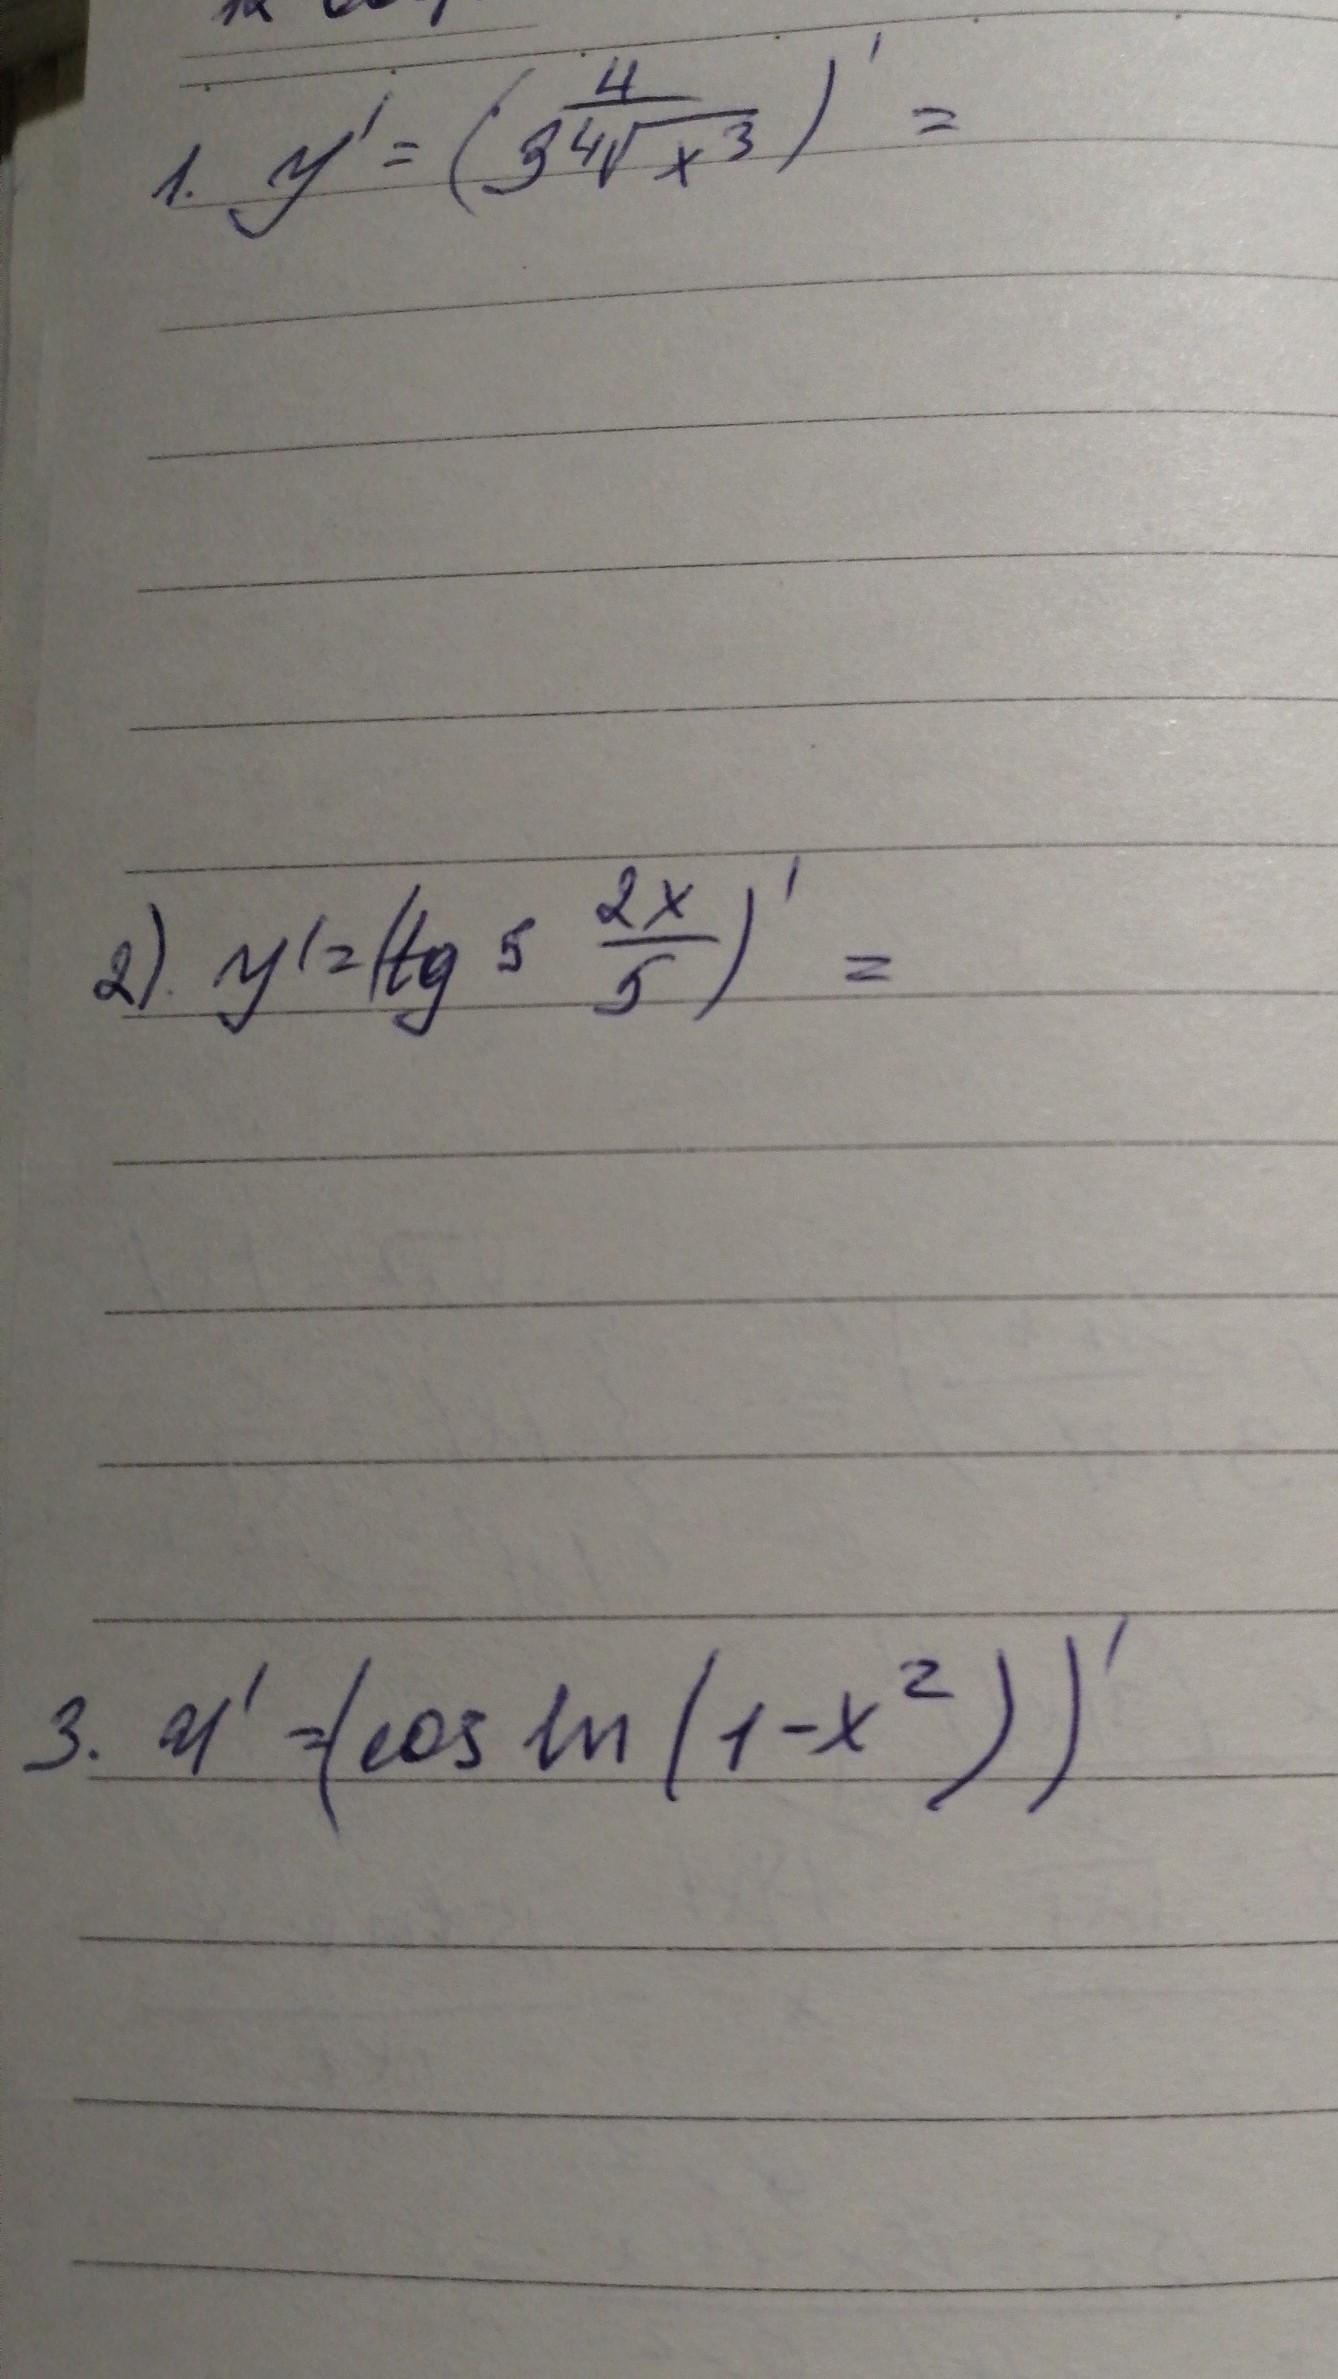 1. y' = (4/(3 ⁴√x³))' =
2). y' = (tg 5 2x/5)' =
3. y' = (cos ln (1-x²))'